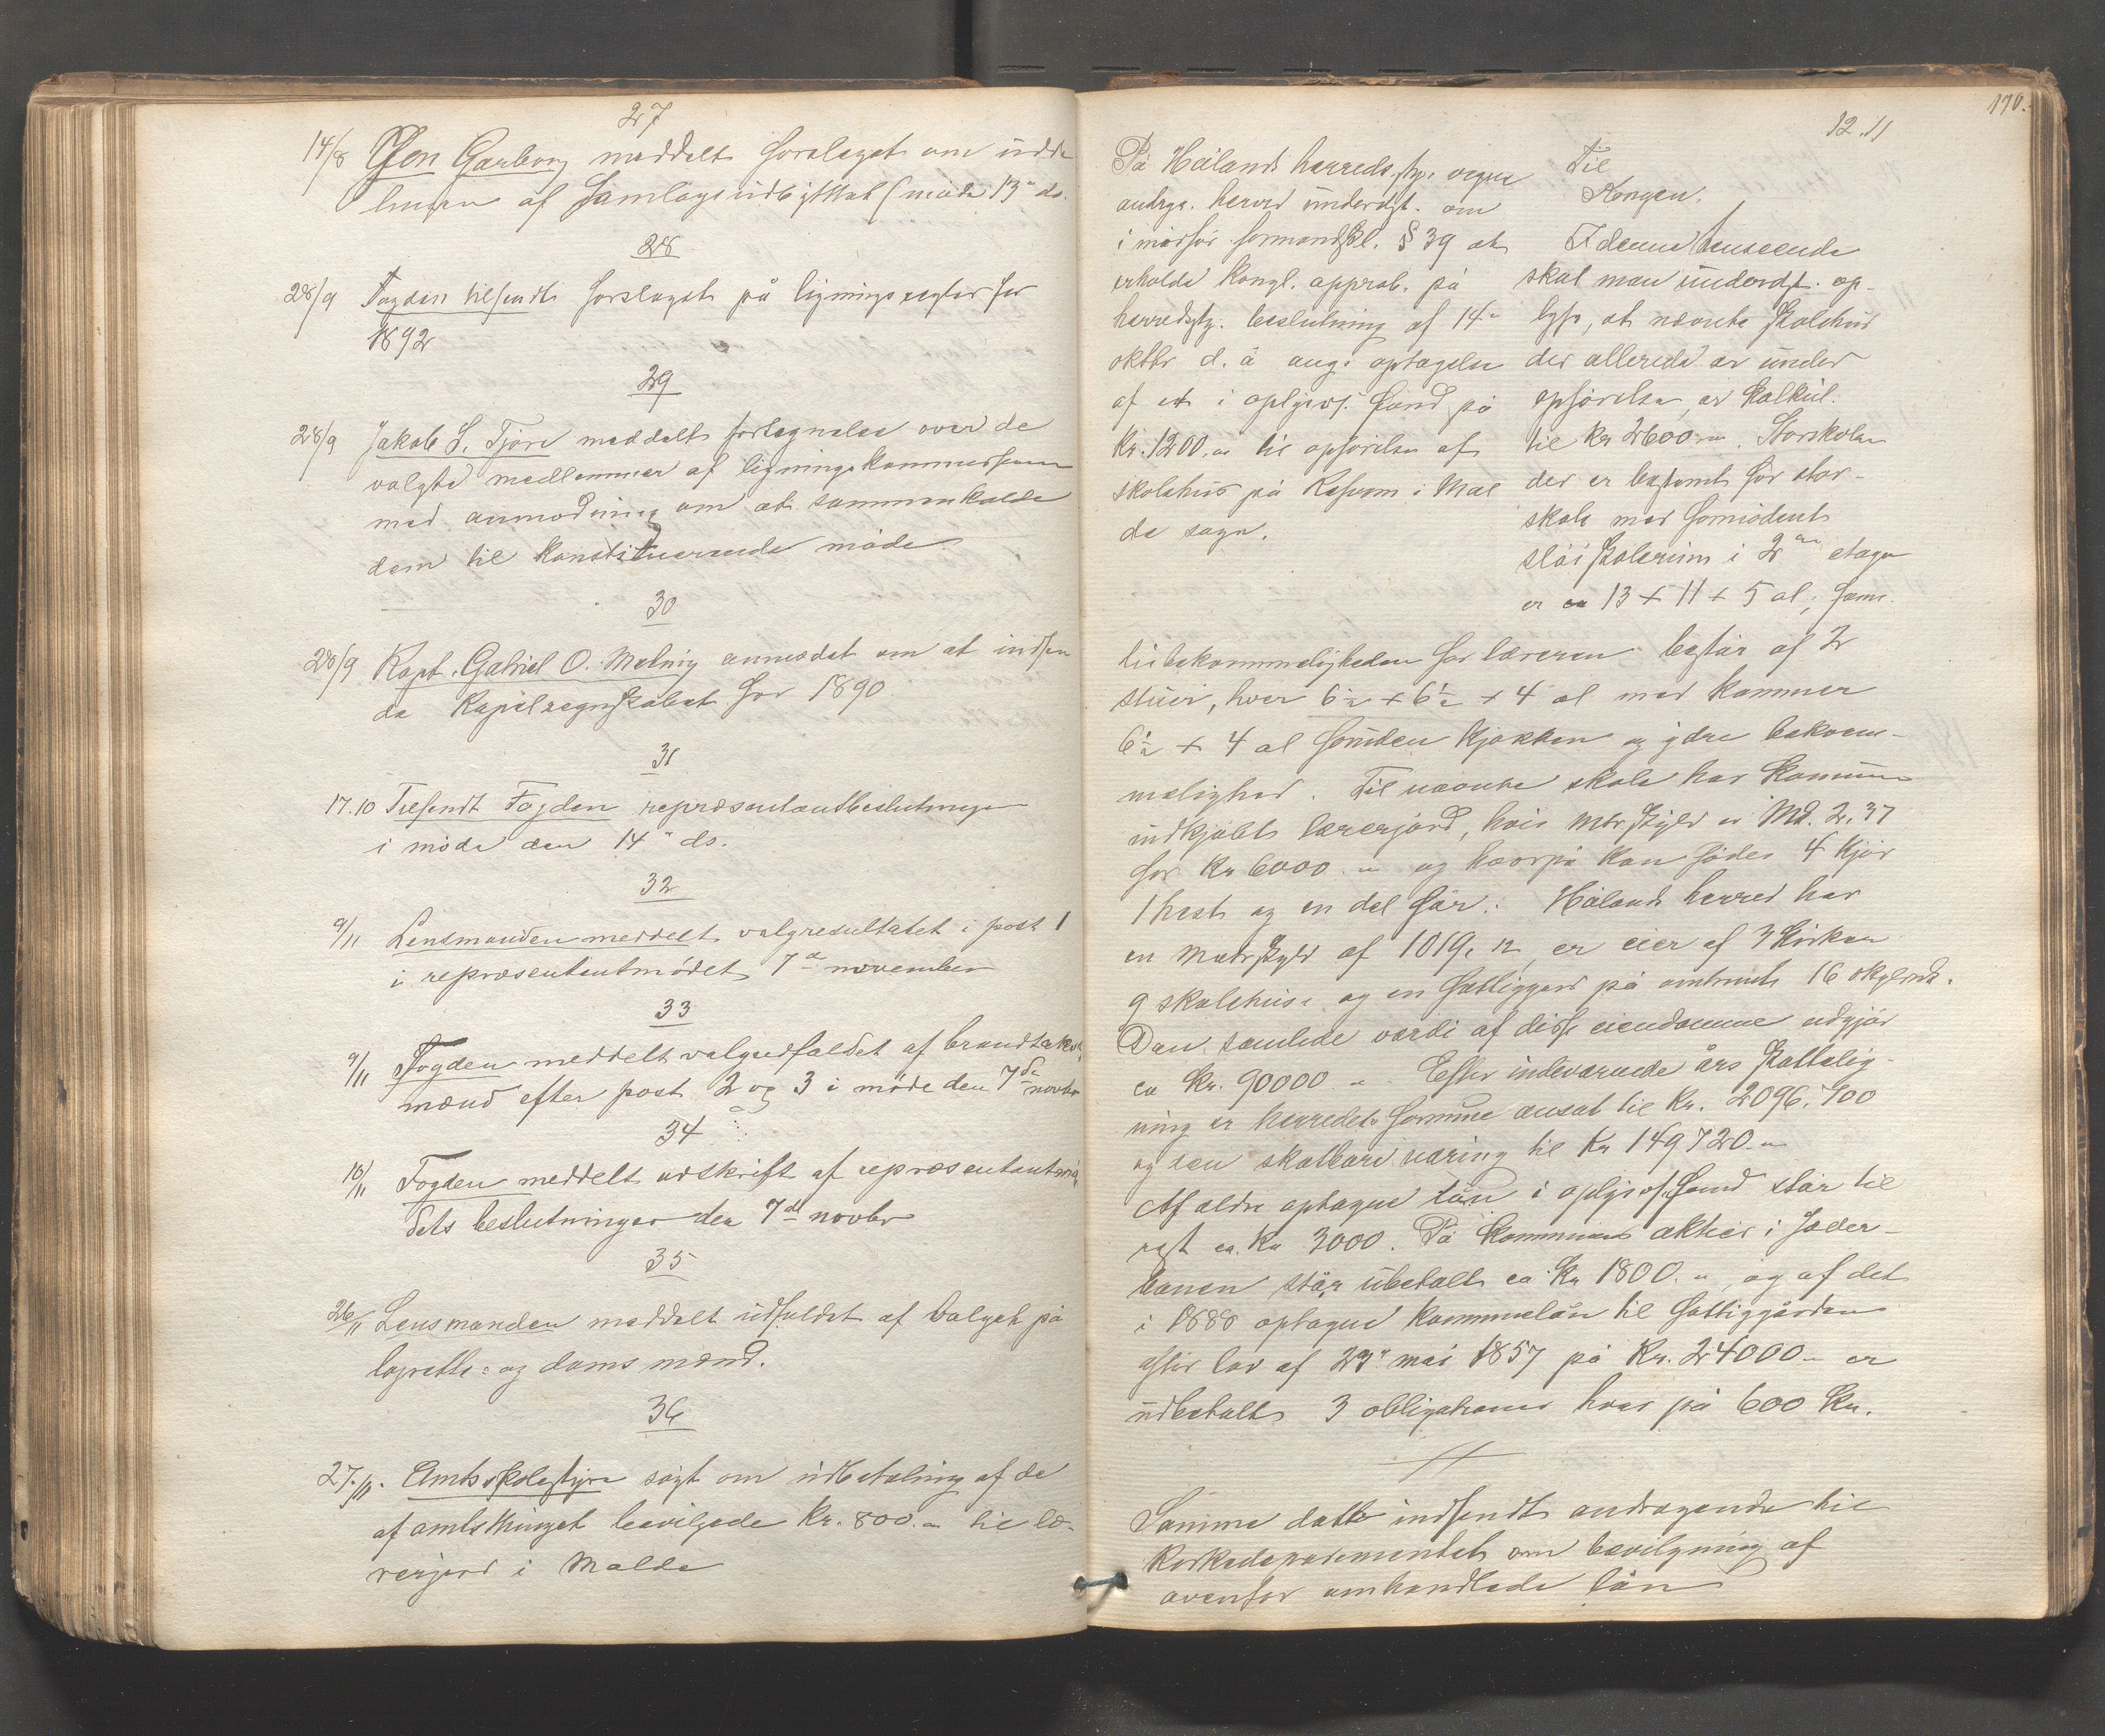 27
14/8 Jon Garborg meddelt forslaget om udde
lingen af Samlagsudbyttet (møde 13de ds.
28
28/9 Fogden tilsendt forslaget på ligningsregler for
1892
29
28/9 Jakob S. Tjøre meddelt fortegnelse over de
valgte medlemmer af ligningskommissionen
med anmodning om at sammenkalde
dem til konstituerende møde
30
28/9 Kapt. Gabriel O. Melvig anmodet om at indsen
de Kapelregnskabet for 1890
31
17.10 Tilsendt Fogden repræsentantbeslutninger
i møde den 14de ds.
32
9/11 Lensmanden meddelt valgresultatet i post 1
i repræsentantmødet 7de november
33
9/11 Fogden meddelt valgudfaldet af brandtakst
mænd efter post 2 og 3 i møde den 7de novbr
34
10/11 Fogden meddelt udskrift af repræsentantmø
dets beslutninger den 7de novbr
35
26/11 Lensmanden meddelt udfaldet af valget på
lagrette- og doms mænd.
36
27/11. Amtsskolestyre søgt om udbetaling af de
af amtsthinget bevilgede Kr. 800.- til læ-
rerjord i Malde
170.
12.11
På Hålands herreds.sty. vegne
andrges. herved underdgt. om
i medfør formandskl. § 39 at
erholde kongl. approb. på
herredsty. beslutning af 14de
oktbr d. å ang. optagelse
af et i oplysnf. fond på
Kr. 1200.- til opførelse af
skolehus på i Mal
de sogn.
Til
Kongen.
I denne henseende
skal man underdgt. op-
lyse, at nævnte skolehus
der allerede er under
opførelse, er kalkul.
til kr 2600.-. Storskolen
der er bestemt for stor-
skole med fornødent
sløiskolerum i 2den etage
er ca 13 + 11 + 5 al; fami.
liebekvemmeligheden for læreren består af 2
stuer, hver 6½ + 6½ + 4 al med kammer
6½ + 4 al foruden kjøkken og ydre bekvem-
melighed. Til nævnte skole har kommunen
indkjøbt lærerjord, hvis mtrskyld er Md. 2.37
for Kr 6000.- og hvorpå kan fødes 4 kjør
1 hest og en del får. Hålands herred har
en Matrskyld af 1019,12, er eier af 3 kirker
9 skolehuse og en fattiggård på omtrent 16 skyldmk.
Den samlede værdi af disse eiendomme udgjør
ca Kr. 90000.- Efter indeværende års skattelig-
ning er herredets formue ansat til Kr. 2096.700
og den skatbare næring til Kr 149720.-
Af ældre optagne lån i oplysnf. fond står til
rest ca. Kr 3000. På kommunens aktier i Jæder-
banen står ubetalt ca. Kr 1800.- og af det
i 1888 optagne kommunelån til fattiggården
efter lov af 23de mai 1857 på Kr. 24000.- er
udbetalt 3 obligationer hver på 600 Kr.
Samme datto indsendt andragende til
Kirkedepartementet om bevilgning af
ovenfor omhandlede lån